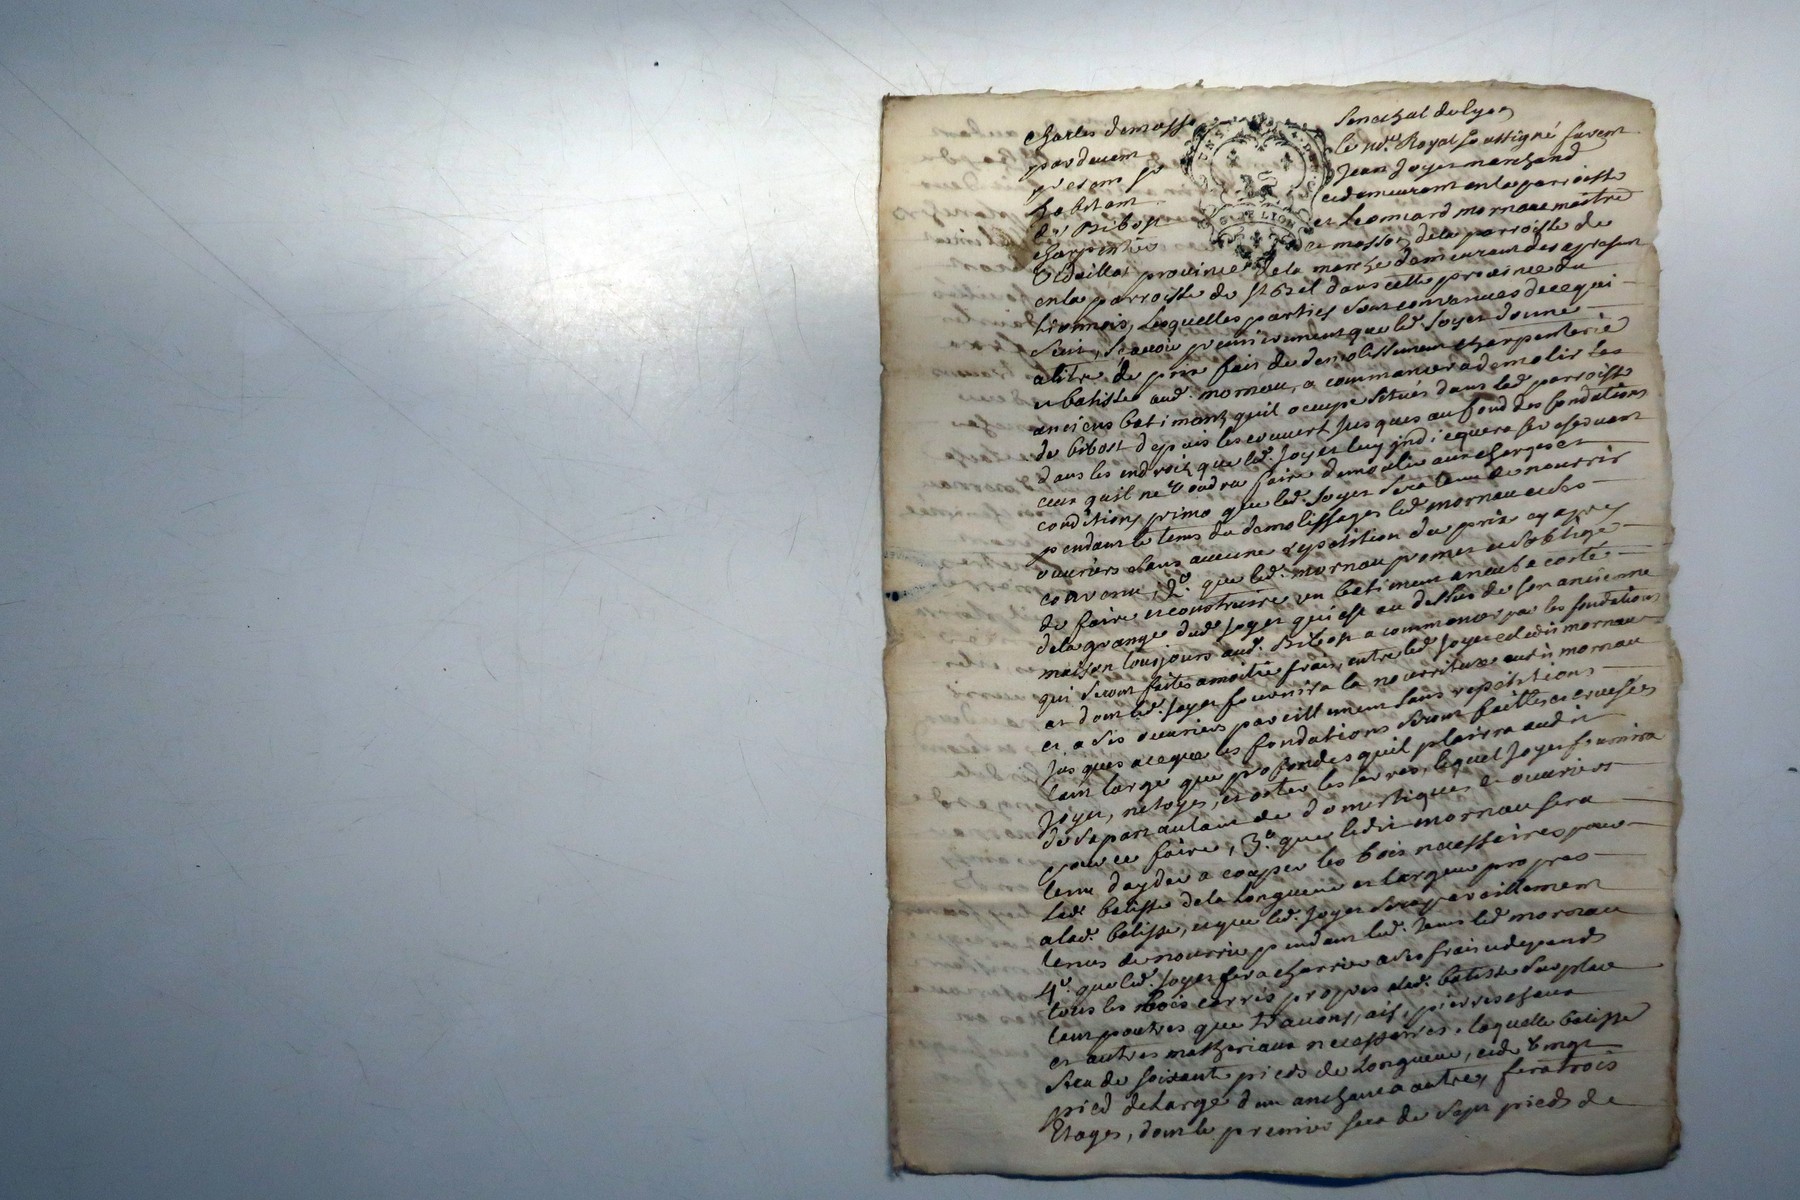 Charles demasso Senechal de lyon
pardevant le no.re Royal soussigné furent
presens sr Jean Joyer marchand
habitant et demeurant en la parroisse
de Bibost et Leonnard mornaue maitre
charpentier et masson de la parroisse de
Vidaillat province de la marche demeurant des apresent
en la parroisse de st Bel dans cette province du
Lionnois, lesquelles parties sont convenues de ce qui
suit, scavoir premierement que led. Joyer donne
atitre de prix fait de demolissement charpenterie
et batisse aud. mornau, a commancer a demolir les
anciens batimans quil occupe situés dans lad. parroisse
de bibost depuis les couvert jusques au fond des fondations
dans les endroits que led. Joyer luy indiquera se reservant
ceux quil ne voudra faire demolir aux charges et
conditions primo que led. Joyer sera tenu de nourrir
pendant le tems du demolissages led. mornau et ses
ouvriers sans aucune repetition du prix cy apres
convenu, 2.o que led. mornau promet et s'oblige
de faire et construire un batiment aneuf a costé
de la grange dud. Joyer qui est au dessus de son ancienne
maison tousjours aud. Bibost a commancer par les fondations
qui seront faites a moitié frais entre led. Joyer et ledit mornau
et dont led. Joyer fournira la nourriture audit mornau
et a ses ouvriers pareillement sans repetitions
jusques a ceque les fondations seront faittes et creusées
tant large que profondes quil plaira audit
Joyer, netoyes, et oster les terres, lequel Joyer fournira
de sa part autant de domestiques et ouvriers
pour ce faire, 3.o que ledit mornau sera
tenu dayder a couper les bois necessaires pour
lad. batisse de la longueur et largeur propres
a lad. batisse, et que led. Joyer sera pareillement
tenus de nourrir pendant led. tems led. mornau
4.o que led. Joyer fera charrier a ses frais et depends
tous les bois carrés propres a lad. batisse sur place
tant poutres que travons, ais, pierres chaux
et autres matheriaux necessaires, laquelle batisse
sera de soixante pieds de longueur, et de vingt
pied de large d'un anchant a autre, fera trois
Etages, dont le premier sera de sept pieds de
G. DE LION